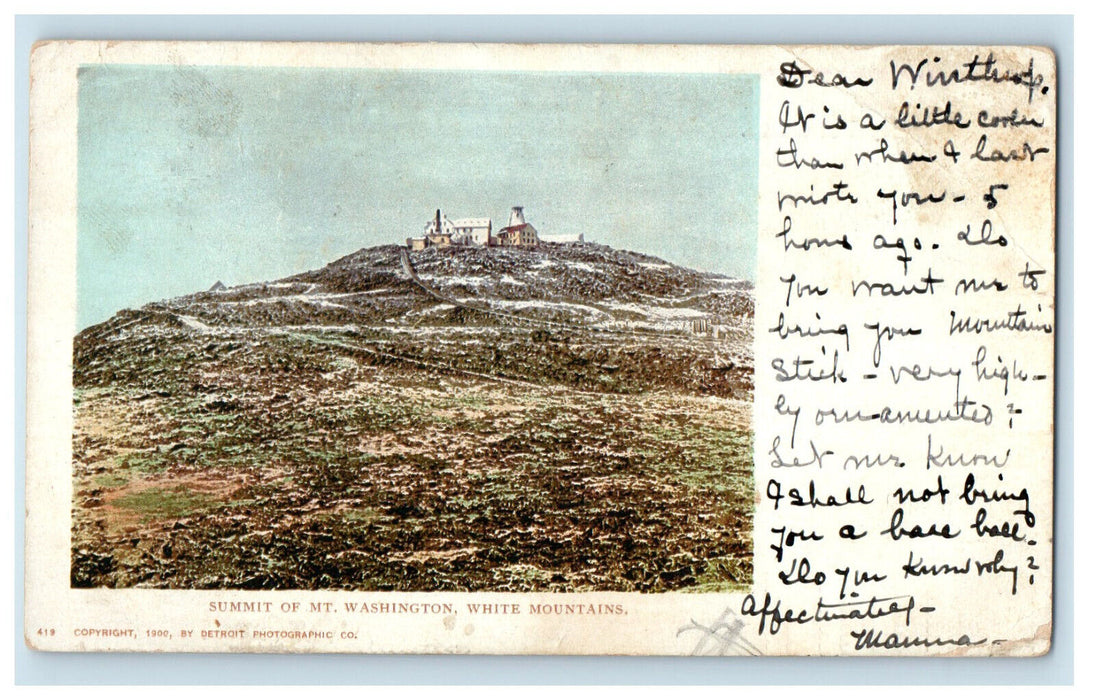 Dear Winthrop.
It is a little cooler
than when I last
wrote you - 5
hours ago. Do
you want me to
bring you Mountain
Stick - very high-
ly ornamented?
Let me know
I shall not bring
you a base ball.
Do you know why?
Affectionately -
Mamma -
SUMMIT OF MT. WASHINGTON, WHITE MOUNTAINS.
419 COPYRIGHT, 1900, BY DETROIT PHOTOGRAPHIC CO.